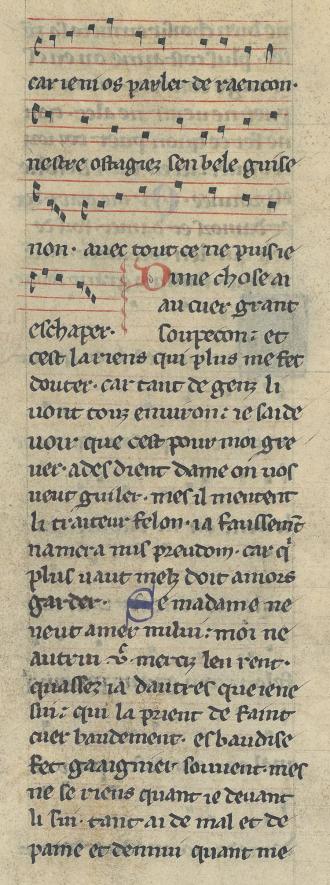 car ieni os parler de raencon·
nestre ostagiez sen bele guise
non· auec tout ce ne puis ie
Dune chose ai
au cuer grant
eschaper· soupecon: et
cest la riens qui plus me fet
douter· car tant de genz li
uont touz enuiron: ie sai de
uoir que cest pour moi gre
uer· ades dient dame on uos
ueut guiler· mes il mentent
li traiteur felon· ia faussemt̄
namera nus preudom· car q̄
plus uaut melz doit amors
garder· Se madame ne
ueut amer nului: moi ne
autrui · merciz len rent·
quassez ia dautres que iene
sui: qui la prient de faint
cuer baudement· esbaudise
fet gaaignier souuent· mes
ne se riens quant ie deuant
li sui· tant ai de mal et de
paine et dennui quant me